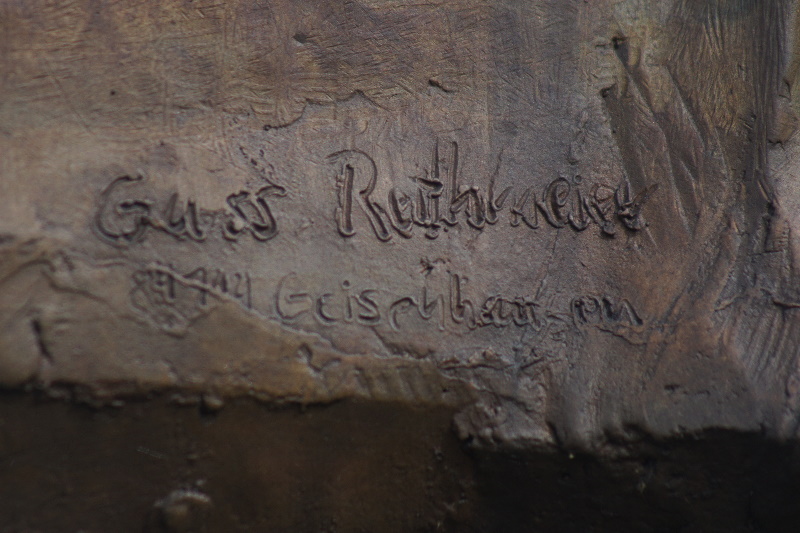 Guss Rothmeier
84144 Geisenhausen